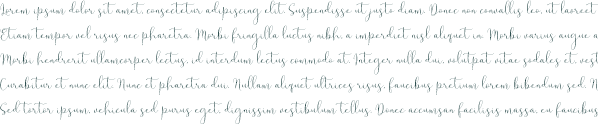 Lorem ipsum dolor sit amet, consectetur adipiscing elit. Suspendisse ut justo diam. Donec non convallis leo, ut laoreet
Etiam tempor vel risus nec pharetra. Morbi fringilla luctus nibh, a imperdiet nisl aliquet in. Morbi varius augue a
Morbi hendrerit ullamcorper lectus, id interdum lectus commodo at. Integer nulla dui, volutpat vitae sodales et, vest
Curabitur et nunc elit. Nunc et pharetra dui. Nullam aliquet ultrices risus, faucibus pretium lorem bibendum sed. N
Sed tortor ipsum, vehicula sed purus eget, dignissim vestibulum tellus. Donec accumsan facilisis massa, eu faucibus